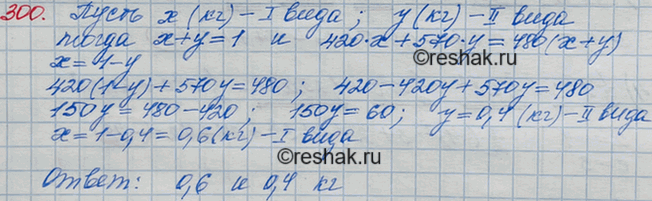 300. Пусть x (кг) – I вида; y (кг) – II вида
тогда x+y=1 и 420·x+570·y=480(x+y)
x=1-y
420(1-y)+570y=480; 420-420y+570y=480
150y=480-420; 150y=60; y=0,4 (кг) – II вида
x=1-0,4=0,6(кг) – I вида
©reshak.ru
Ответ: 0,6 и 0,4 кг
©reshak.ru